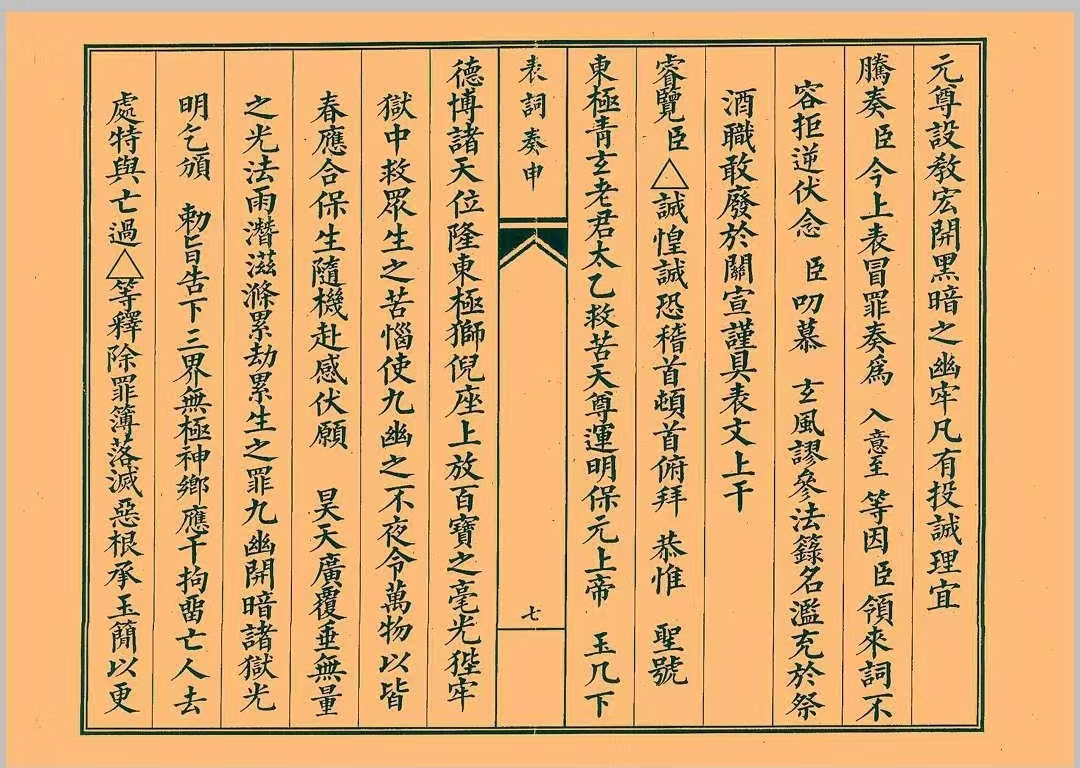 元尊設敎宏開黑暗之幽牢凡有投誠理宜
騰奏臣今上表冒罪奏爲 入意至 等因臣領來詞不
容拒逆伏念 臣叨慕 玄風謬參法籙名濫充於祭
酒職敢廢於關宣謹具表文上干
睿覽臣△誠惶誠恐稽首頓首俯拜 恭惟 聖號
東極青玄老君太乙救苦天尊運明保元上帝 玉几下
表詞奏申
七
德博諸天位隆東極獅倪座上放百寶之毫光狴牢
獄中救眾生之苦惱使九幽之不夜令萬物以皆
春應合保生隨機赴感伏願 昊天廣覆垂無量
之光法雨潛滋滌累劫累生之罪九幽開暗諸獄光
明乞頒 勅旨告下三界無極神鄉應干拘畱亡人去
處特與亡過△等釋除罪簿落滅惡根承玉簡以更